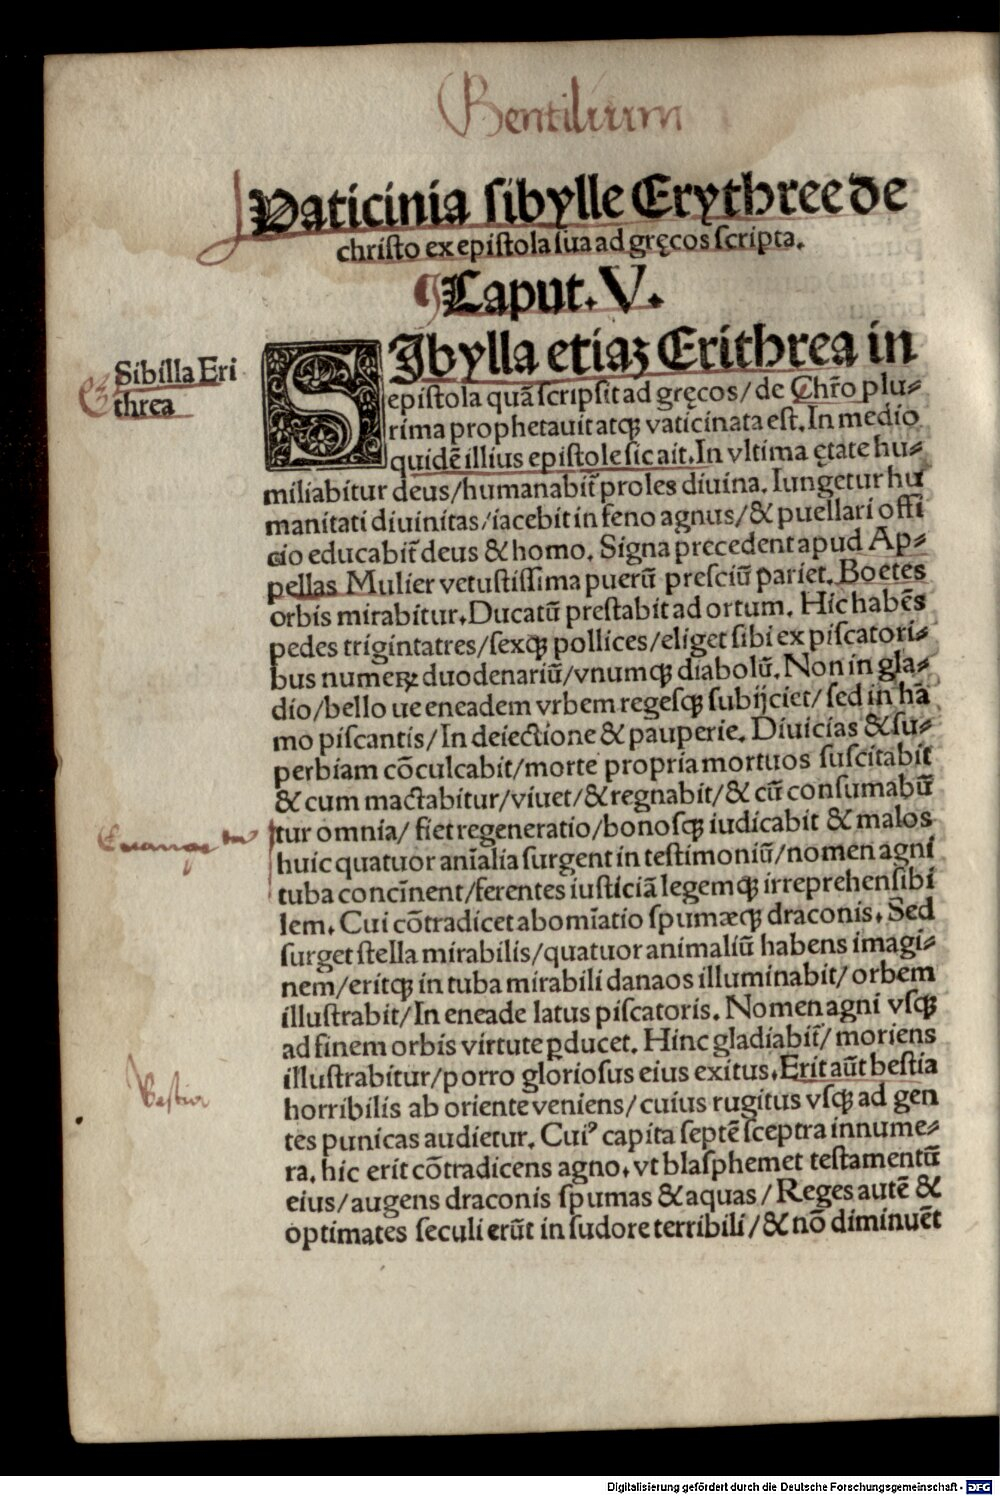 Gentilium
Vaticinia sibylle Erythree de
christo ex epistola sua ad gręcos scripta.
Caput. V.
Sibilla Eri
threa
SIbylla etiaꝫ Erithrea in
epistola quā scripsit ad gręcos/ de Chr̄o plu⸗
rima prophetauit atqꝫ vaticinata est. In medio
quidē illius epistole sic ait. In vltima ętate hu⸗
miliabitur deus/humanabit̄ proles diuina. Iungetur hu
manitati diuinitas/iacebit in feno agnus/& puellari offi
cio educabit̄ deus & homo. Signa precedent apud Ap⸗
pellas Mulier vetustissima puerū presciū pariet. Boetes
orbis mirabitur. Ducatū prestabit ad ortum. Hic habēs
pedes trigintatres/sexqꝫ pollices/eliget sibi ex piscatori⸗
bus numeꝝ duodenariū/vnumqꝫ diabolū. Non in gla⸗
dio/bello ue eneadem vrbem regesqꝫ subijciet/ sed in hā
mo piscantis/ In deiectione & pauperie. Diuicias & su⸗
perbiam cōculcabit/morte propria mortuos suscitabit
& cum mactabitur/viuet/& regnabit/& cū consumabū
tur omnia/ fiet regeneratio/bonosqꝫ iudicabit & malos
huic quatuor anīalia surgent in testimoniū/nomen agni
tuba concīnent/ferentes iusticiā legemqꝫ irreprehensibi
lem. Cui cōtradicet abomīatio spumæqꝫ draconis. Sed
surget stella mirabilis/quatuor animaliū habens imagi⸗
nem/eritqꝫ in tuba mirabili danaos illuminabit/ orbem
illustrabit/ In eneade latus piscatoris. Nomen agni vsqꝫ
ad finem orbis virtute ꝓducet. Hinc gladiabit̄/ moriens
illustrabitur/porro gloriosus eius exitus. Erit aūt bestia
Bestia
horribilis ab oriente veniens/cuius rugitus vsqꝫ ad gen
tes punicas audietur. Cuiꝰ capita septē sceptra innume⸗
ra. hic erit cōtradicens agno. vt blasphemet testamentū
eius/augens draconis spumas & aquas/ Reges autē &
optimates seculi erūt in sudore terribili/& nō diminuēt
Digitalisierung gefördert durch die Deutsche Forschungsgemeinschaft - DFG